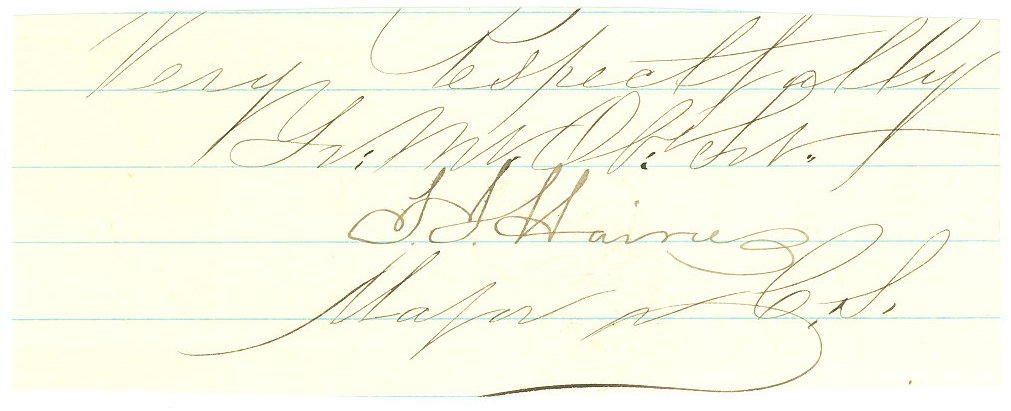 Very Respectfully
Yr. Mo. Ob. Svt.
Major & C.S.